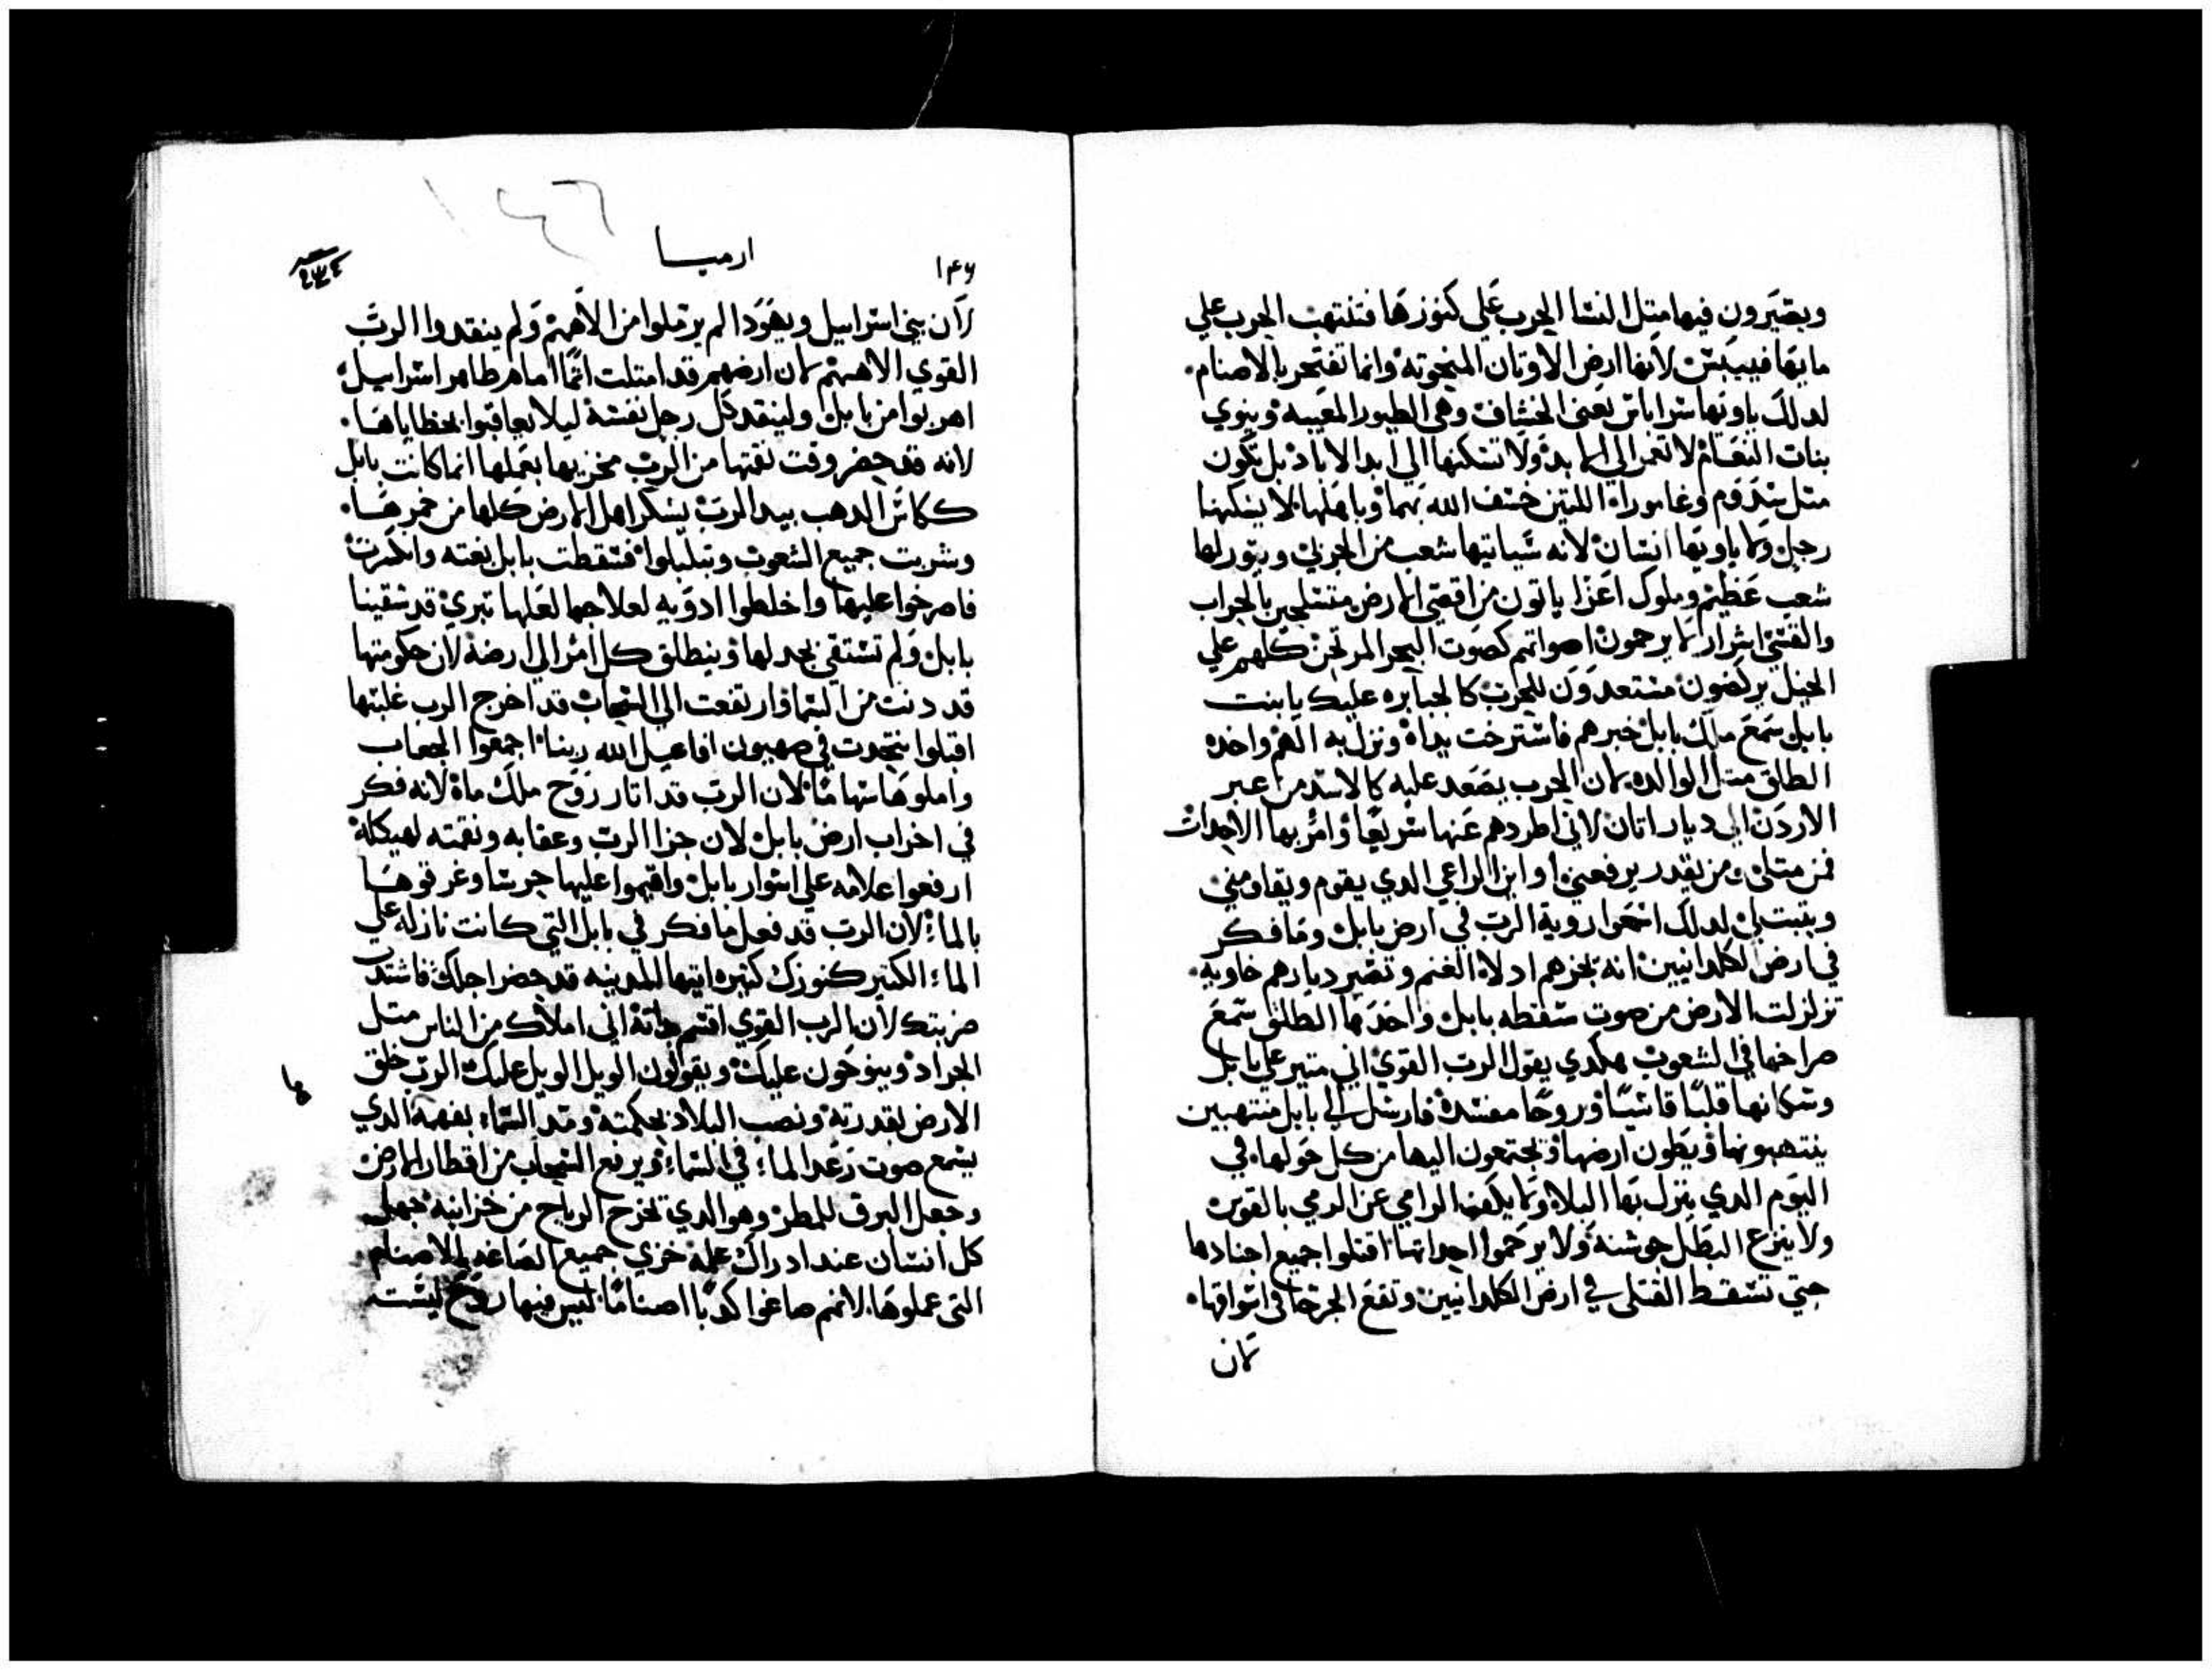 ويصيرون فيها متل النسا الحرب علي كنوزها فتنتهب الحرب علي
مايها فييبس لانها ارض الاوتان المنحوته وانما تفتخر بالاصنام
لدلك ياويها سراياس يعني الخشاف وهي الطيور المعيبه وينوي
بنات النعام لا تعمر الي الابد ولا تسكنها الي ابد الاباد بل تكون
متل سدوم وغامورا اللتين خسف الله بهما وباهلها لا يسكنها
رجل ولا ياويها انسان لانه سياتيها شعب من الجربي ويتور لها
شعب عظيم وملوك اعزا ياتون من اقصي الارض متسلحين بالحراب
والقسي اشرار لا يرحمون اصواتهم كصوت البحر المرتج كلهم علي
الخيل يركضون مستعدون للحرب كالجبابره عليك يا بنت
بابل سمع ملك بابل خبرهم فاسترخت يداه ونزل به الهم واخده
الطلق متل الوالده لان الحرب يصعد عليه كالاسد من عبر
الاردن الي ديار اتان لاني اطردهم عنها سريعا وامر بها الاحداث
فمن متلي ومن يقدر يرفعني او اين الراعي الدي يقوم ويقاومني
ويتبت لي لدلك اسمعوا روية الرب في ارض بابل وما فكر
في ارض الكلدانيين انه تجرهم ادلاء الغنم وتصير ديارهم خاويه
تزلزلت الارض من صوت سقطه بابل واخدها الطلق سمع
صراخها في الشعوب هكدي يقول الرب القوي اني متير علي بابل
وسكانها قلبا قاسيا وروحا مفسده فارسل الي بابل منتهبين
ينتهبونها ويطون ارضها ويجتمعون اليها من كل حولها في
اليوم الدي ينزل بها البلاء ولا يكف الرامي عن الرمي بالقوس
ولا ينزع البطل جوشنه ولا يرحموا احداتها اقتلوا جميع اجنادها
حتي تسقط القتلي في ارض الكلدانيين وتقع الجرحا في اسواقها
لان
١٤٦
ارميا
١٤٦
لان بني اسراييل ويهودا لم يرملوا من الاههم ولم ينقدوا الرب
القوي الاههم لان ارضهم قد امتلت اتما اما هم طاهر اسراييل
اهربوا من بابل ولينقد كل رجل نفسه ليلا يعاقبوا بخطاياها
لانه قد حضر وقت نقمتها من الرب مخزيها بعملها انما كانت بابل
ككاس الدهب بيد الرب يسكر اهل الارض كلها من خمرها
وشربت جميع الشعوب وتبلبلوا فسقطت بابل بغته وانكسرت
فاصرخوا عليها واخلطوا ادويه لعلاجها لعلها تبري قد شقينا
بابل ولم تستقي بحد لها وينطلق كل امر الي ارضه لان حكومتها
قد دنت من السما وارتفعت الي السحاب قد اخرج الرب غلبتها
اقبلوا نتحدت في صهيون افاعيل الله ربنا اجمعوا الجعاب
واملوها سهاما لان الرب قد اتار روح ملك ماه لانه فكر
في اخراب ارض بابل لان جزا الرب وعقابه ونقمته لهيكله
ارفعوا علامه علي اسوار بابل واقيموا عليها حرسا وغرقوها
بالماء لان الرب قد فعل ما فكر في بابل التي كانت نازله علي
الماء الكتير كنوزك كتيره ايتها المدينه قد حضر اجلك فاشتد
ضربتك لان الرب القوي اقسم بداته اني املاك من الناس متل
الجراد وينوحون عليك ويقولون الويل الويل عليك الرب خلق
الارض بقدرته ونصب البلاد بحكمته ومد السماء بفهمه الدي
يسمع صوت رعد الماء في السماء ويرفع السحاب من اقطار الارض
وجعل البرق للمطر وهو الدي يخرج الرياح من خزاينه جهل
كل انسان عند ادراك علمه خزي جميع الصاغه بالاصنام
التي عملوها لانهم صاغوا كدبا اصناما ليس فيها روح ليست